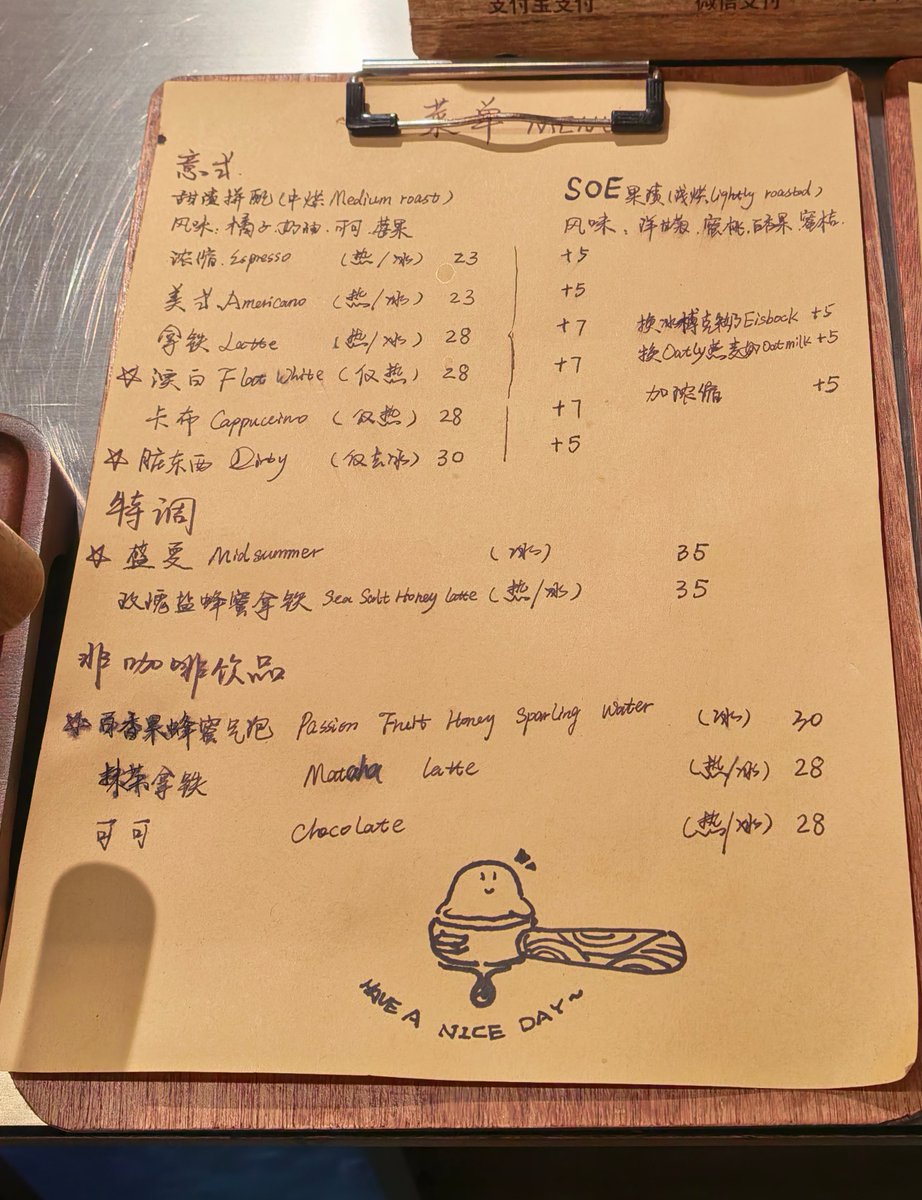 支付宝支付 微信支付
菜单 MENU
意式
甜渣拼配(中烘 Medium roast)
风味:橘子.奶油.可可.莓果
SOE果渍(浅烘Lightly roasted)
风味:洋甘菊.蜜桃.百香果.蜜桔.
浓缩.Espresso (热/冰) 23 +5
美式.Americano (热/冰) 23 +5
拿铁 Latte (热/冰) 28 +7 换冰博克奶Eisbock +5
换Oatly燕麦奶Oatmilk +5
☆澳白 Flat White (仅热) 28 +7
加浓缩 +5
卡布 Cappuccino (仅热) 28 +7
☆脏东西 Dirty (仅去冰) 30 +5
特调
☆蓝夏 Midsummer (冰) 35
玫瑰盐蜂蜜拿铁 Sea Salt Honey latte (热/冰) 35
非咖啡饮品
☆百香果蜂蜜气泡 Passion Fruit Honey Sparling Water (冰) 30
抹茶拿铁 Matcha latte (热/冰) 28
可可 Chocolate (热/冰) 28
HAVE A NICE DAY~